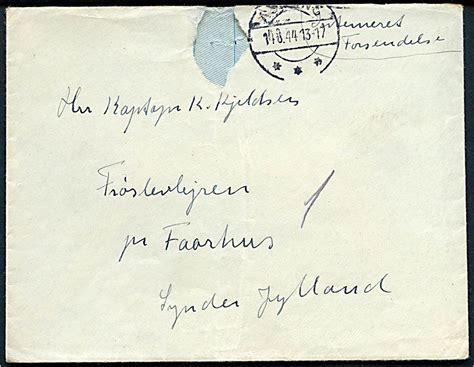 14.8.44.13-17
Interneret
Forsendelse
Hr Kaptajn K. Kjeldsen
Frøslevlejren
pr Faarhus
Sønder Jylland